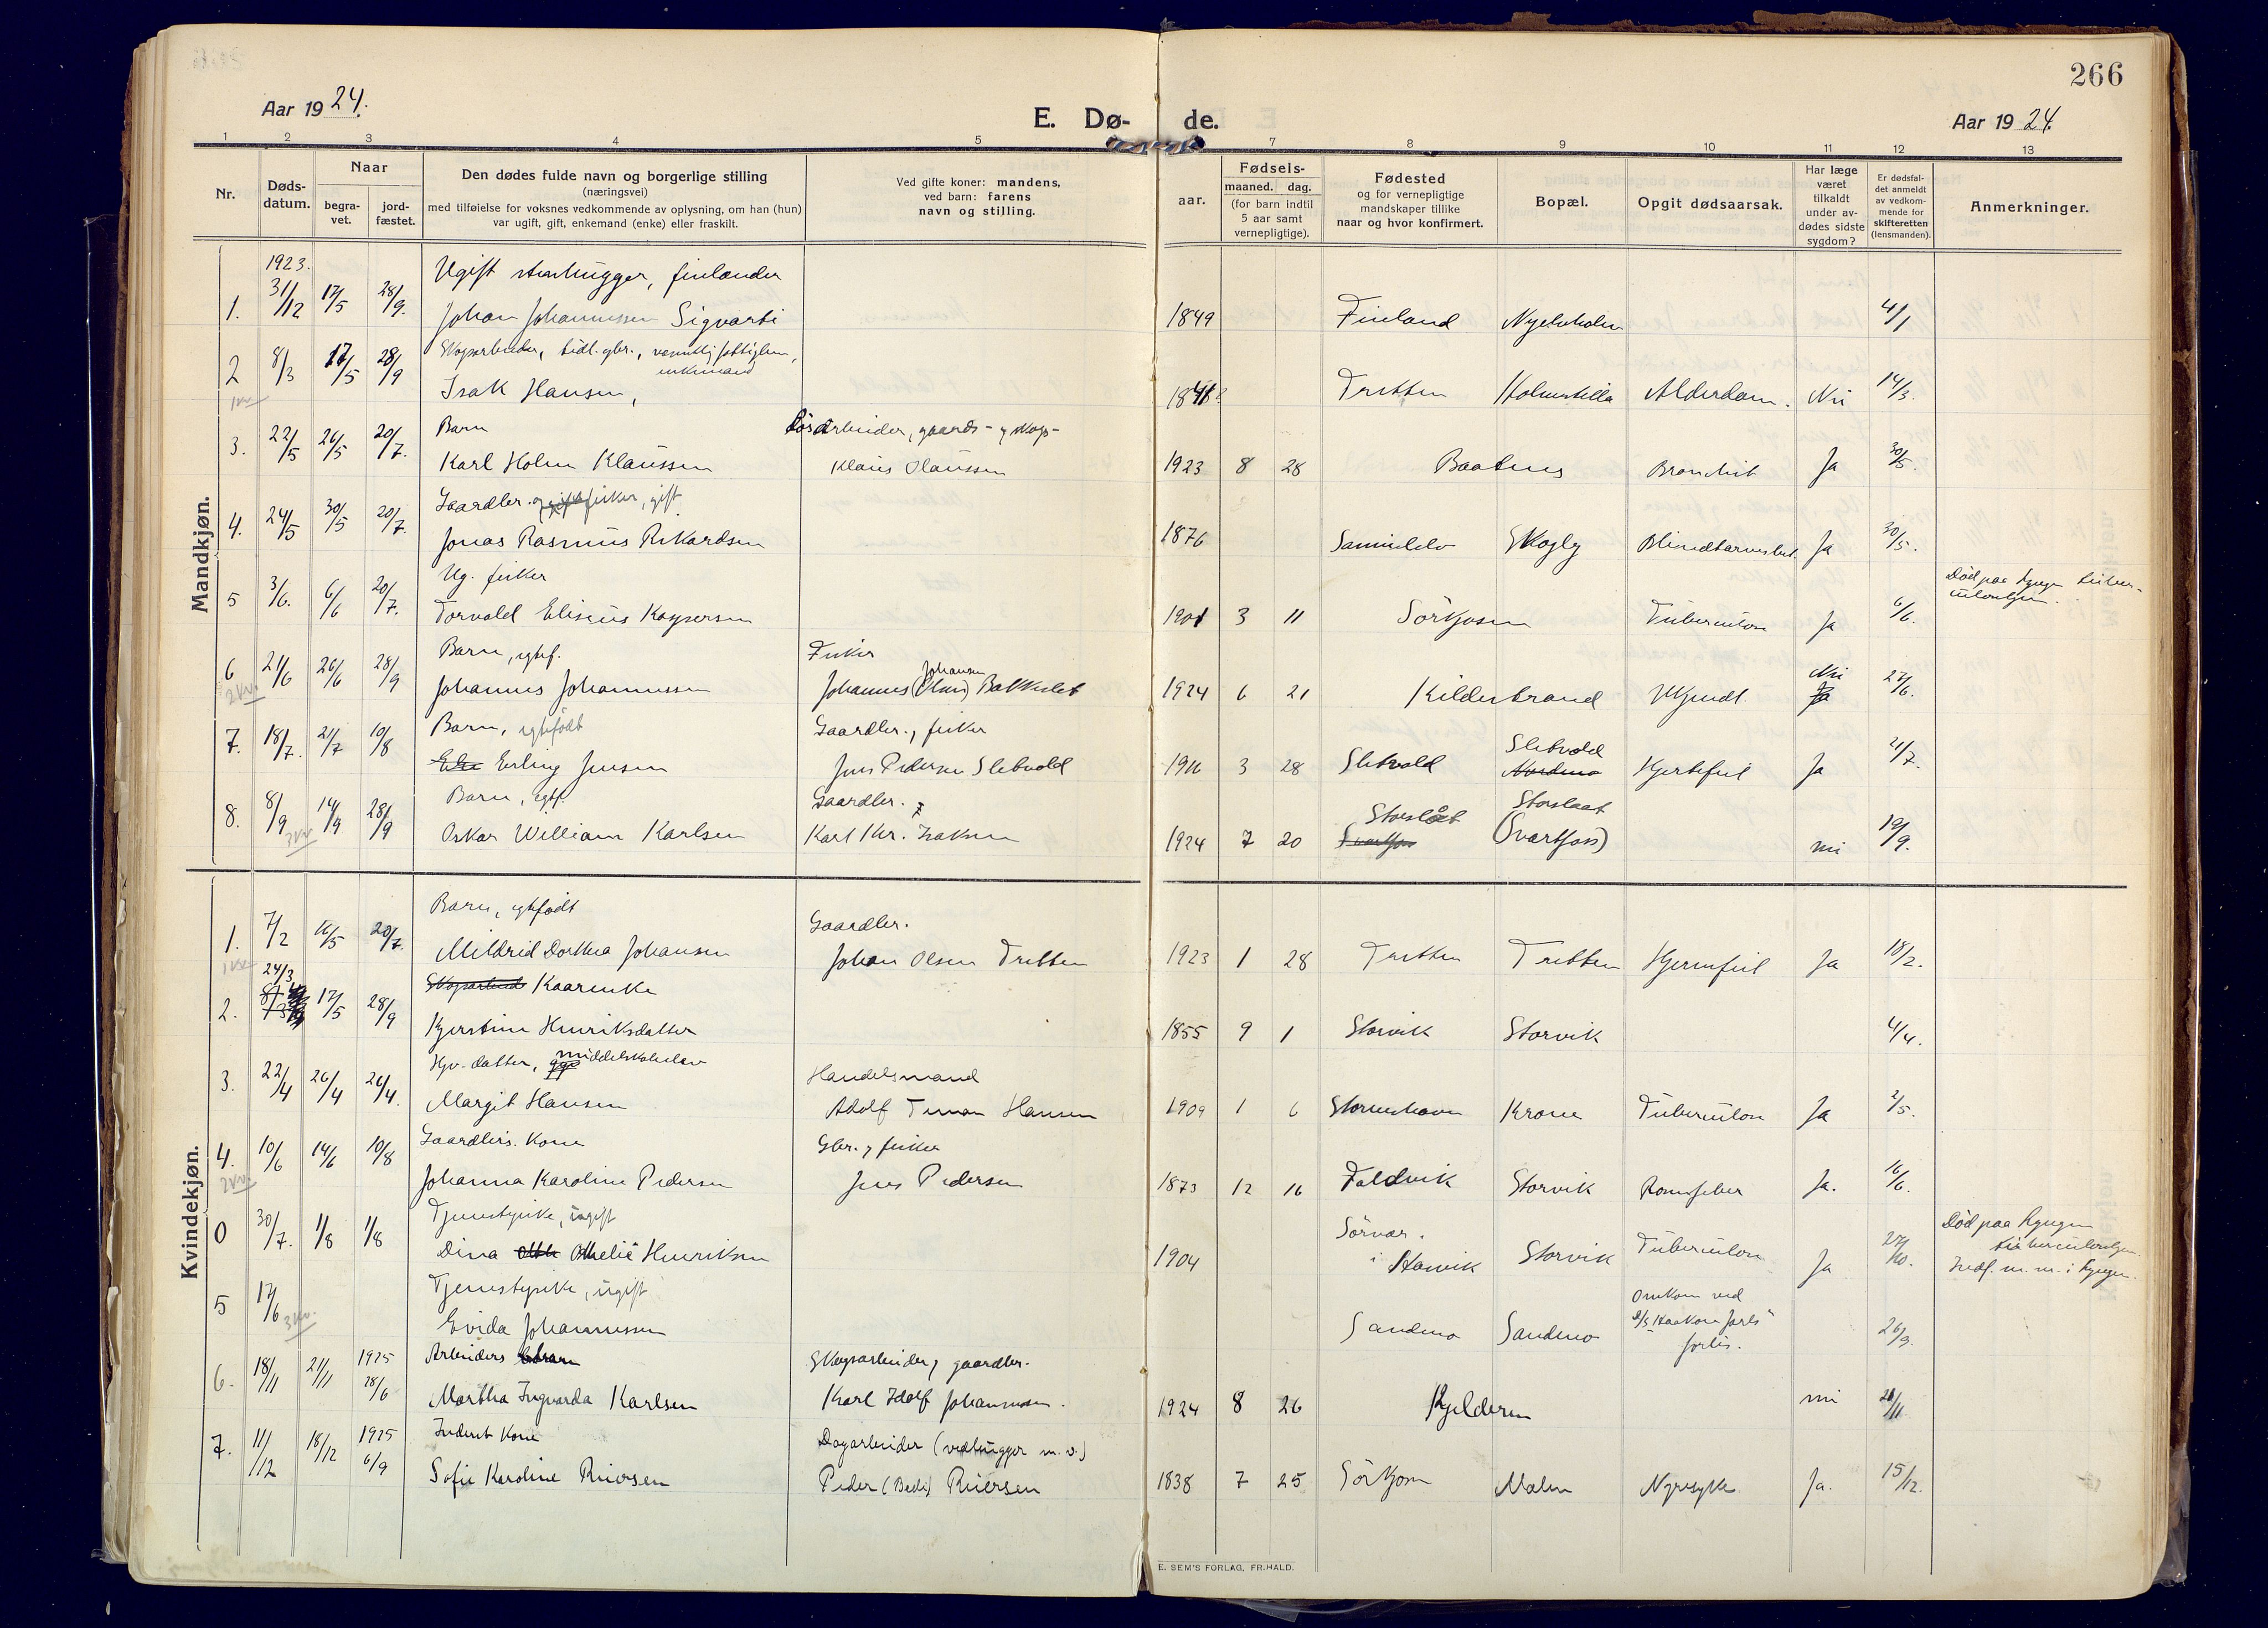 266
Aar 1924.
E. Dø-
de.
Aar 1924.
1 2 3 4 5 7 8 9 10 11 12 13
Nr.
Døds-
datum.
Naar
begra-
vet.
jord-
fæstet.
Den dødes fulde navn og borgerlige stilling
(næringsvei)
med tilføielse for voksnes vedkommende av oplysning, om han (hun)
var ugift, gift, enkemand (enke) eller fraskilt.
Ved gifte koner: mandens,
ved barn: farens
navn og stilling.
Fødsels-
aar.
maaned. dag.
(for barn indtil
5 aar samt
vernepligtige).
Fødested
og for vernepligtige
mandskaper tillike
naar og hvor konfirmert.
Bopæl.
Opgit dødsaarsak.
Har læge
været
tilkaldt
under av-
dødes sidste
sygdom?
Er dødsfal-
det anmeldt
av vedkom-
mende for
skifteretten
(lensmanden).
Anmerkninger.
Mandkjøn.
1923.
Ugift stenhugger, finlænder
1. 31/12 17/5 28/9. Johan Johannessen Sigvarti 1849 Finland 4/1
Skogarbeider, tidl. gbr.,
enkemand
2 8/3 17/5 28/9 Isak Hansen, Tretten Alderdom. Nei 14/3.
Barn
Løsarbeider, gaards- og skogs-
3. 22/5 26/5 20/7. Karl Holm Klaussen Klaus Olaussen 1923 8 28 Baatnes Bronchit Ja 30/5.
Gaardbr. og fisker, gift
4. 24/5 30/5 20/7 Jonas Rasmus Rikardsen 1876 Skogly Ja 30/5.
Ug. fisker
Død paa Lyngen tuber-
5 3/6. 6/6 20/7. Torvald Eliseus Kaspersen 1901 3 11 Sørkjosen Tuberculose Ja 6/6.
Barn, egtef.
Fisker
Johansen
Nei
6 21/6 26/6 28/9 Johannes Johannessen Johannes Bakkeslet 1924 6 21 Kildesbrand Ukjendt. Ja 27/6.
Barn, egtefødt
Gaardbr., fisker
Sletvold
7. 18/7. 21/7 10/8 Erling Jensen Jens Pedersen Sletvold 3 28 Sletvold Nordmo Hjertefeil Ja 21/7.
Barn, egtf.
Gaardbr.
Storslåt
Storslaat
8. 8/9 14/9 28/9 Oskar William Karlsen Karl Kr. Isaksen 1924 7 20 Svartfoss (Svartfoss) nei 19/9.
Kvindekjøn.
Barn, egtefødt
Gaardbr.
1. 7/2 16/5 20/7. Mildrid Dorthea Johansen Johan Olsen Tretten 1923 1 28 Tretten Tretten Hjertefeil Ja 18/2.
24/3
Kaarenke
2. 17/5 28/9 Kjerstine Henriksdatter 1855 9 1 Storvik Storvik 4/4.
Hjv. datter, middelskoleelev
Handelsmand
3. 22/4 26/4 26/4. Margit Hansen Adolf Hansen 1909 1 6 Krone Tuberculose Ja 2/5.
Gaardbr.s. kone
Gbr. og fisker
4. 10/6 14/6 10/8 Johanna Karoline Pedersen Jens Pedersen 1873 12 16 Faldvik Storvik Ja. 16/6.
Tjenestepike, ugift
Sørvær.
Død paa Lyngen
0 30/7. 1/8 1/8 Dina Othelie Henriksen 1904 Storvik Tuberculose Ja
Indf. m. nr. i Lyngen.
Tjenestepike, ugift
Omkom ved
5 17/6 Evida Johannessen Sandmo Sandmo D/S Haakon Jarls
forlis. 26/9.
Arbeiders barn
Skogsarbeider, gaardbr.
1925
6. 18/11 21/11 28/6 Martha Ingvarda Karlsen Karl Idolf Johannesen. 1924 8 26 Kjelderen nei
Inderst kone
Dagarbeider (vedhugger m.v.)
1925
7. 11/12 18/12 6/9 Sofie Karoline Riersen Peder (Bedi) Riersen 1838 7 25 Sørkjosen Malen Nyresyke Ja. 15/12.
E. SEM'S FORLAG, FR.HALD.